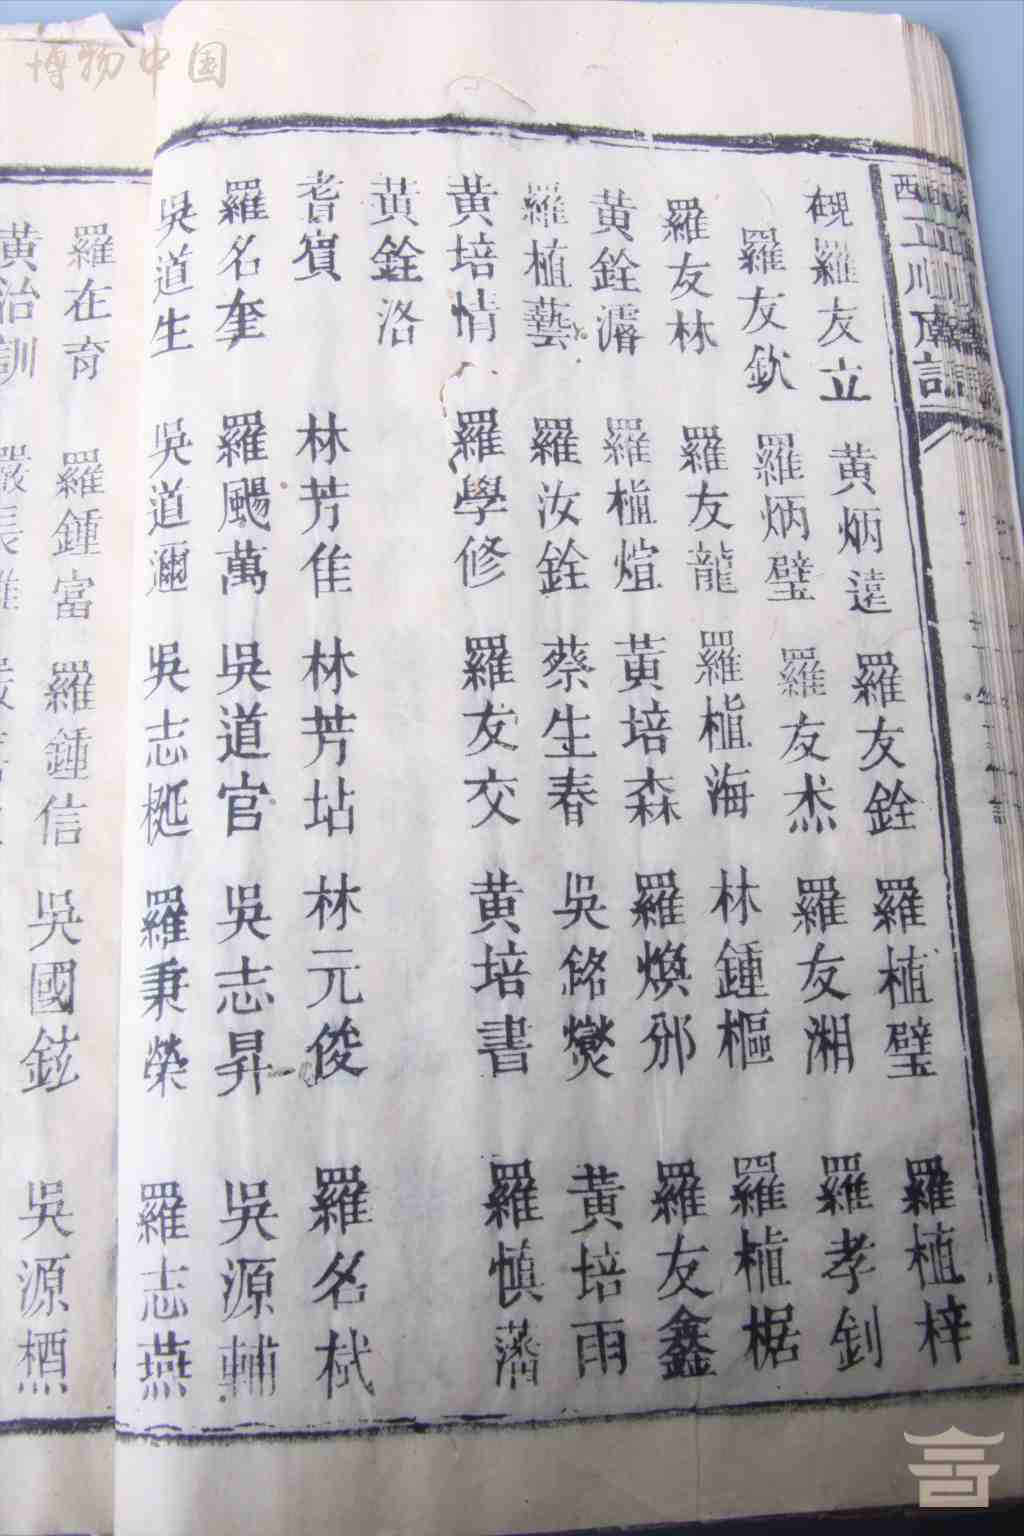 博物中国
羅友立 黄炳遠 羅友銓 羅植璧 羅植梓
羅友欽 羅炳璧 羅友杰 羅友湘 羅孝釗
羅友林 羅友龍 羅植海 林鍾樞 羅植椐
黄銓濬 羅植煊 黄培森 羅煥邠 羅友鑫
羅植藝 羅汝銓 蔡生春 吳銘爕 黄培雨
黄培情 羅學修 羅友交 黄培書 羅慎藩
黄銓洛
耆賔 林芳隹 林芳坫 林元俊 羅名栻
羅名奎 羅颺萬 吳道官 吳志昇 吳源輔
吳道生 吳道濔 吳志梴 羅秉榮 羅志燕
羅在育 羅鍾富 羅鍾信 吳國鉉 吳源槱
黄治訓